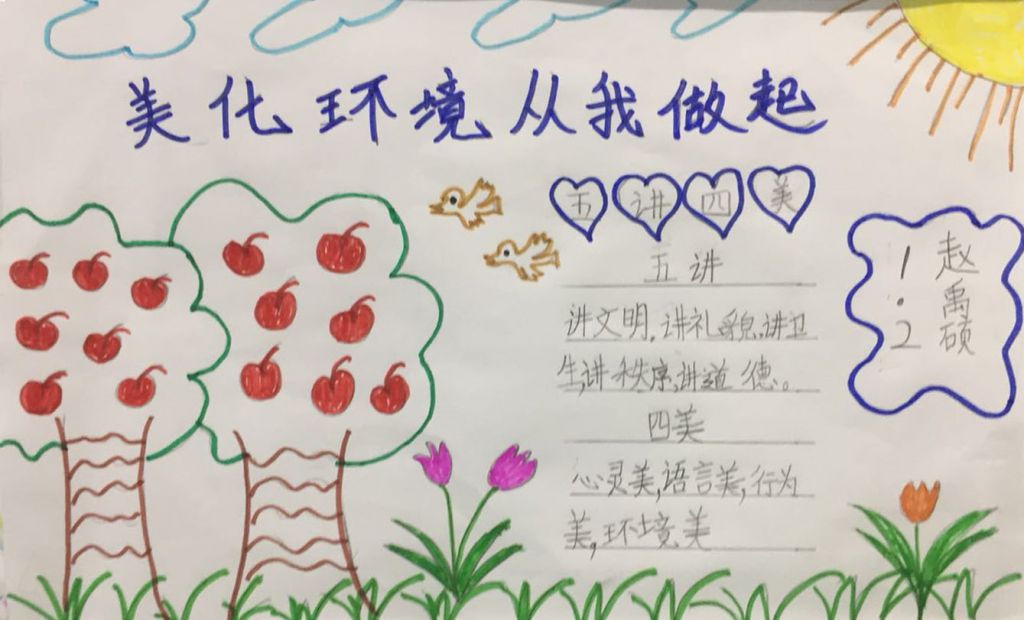 美化环境从我做起
五讲四美
五讲
讲文明,讲礼貌,讲卫
生,讲秩序,讲道德。
四美
心灵美,语言美,行为
美,环境美
1.2
赵禹硕